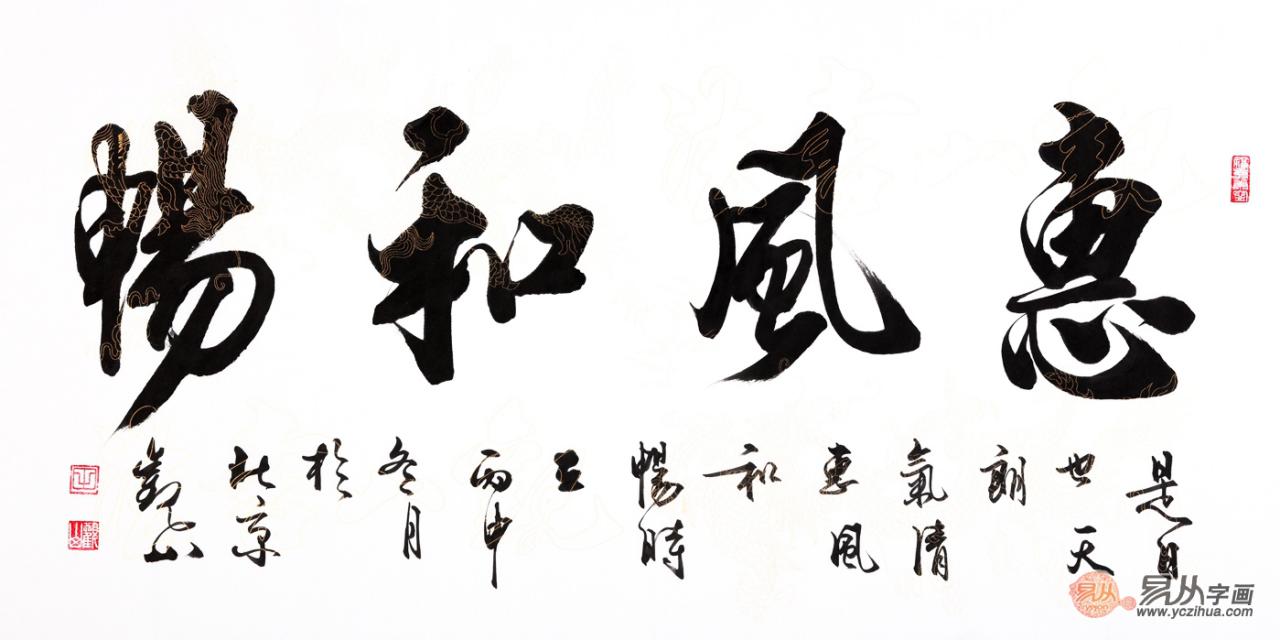 惠風和暢
是日
也天
朗
氣清
惠風
和
暢時
在
丙申
冬月
於
北京
易从字画
www.yczihua.com